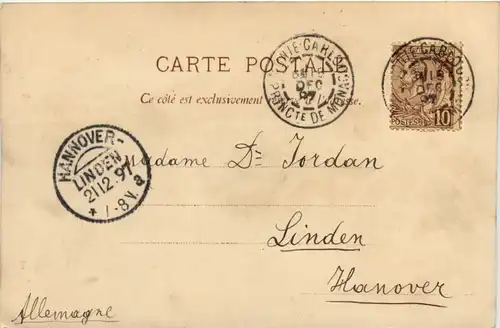 CARTE POSTALE
Ce côté est exclusivement
MONTE CARLO
DEC
97
PRINCTE DE MONACO
POSTES
10
HANNOVER-
LINDEN
21.12.97
7-8V. a
Madame Dr Jordan
Linden
Hanover
Allemagne